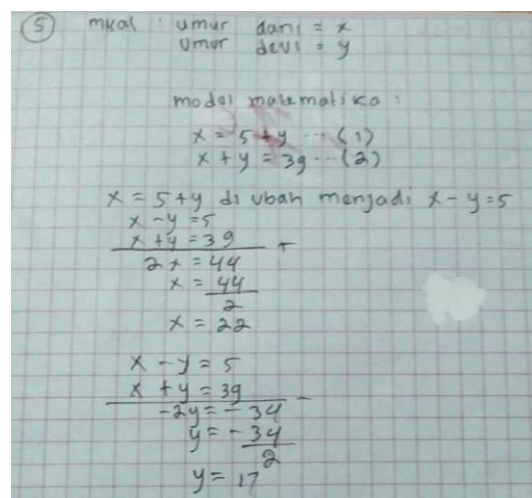 5 mkal : umur dani = x
umur devi = y
modal matematika :
x = 5 + y ... (1)
x + y = 39 ... (2)
x = 5 + y di ubah menjadi x - y = 5
x - y = 5
x + y = 39 +
2x = 44
x = 44
2
x = 22
x - y = 5
x + y = 39 -
-2y = - 34
y = - 34
2
y = 17